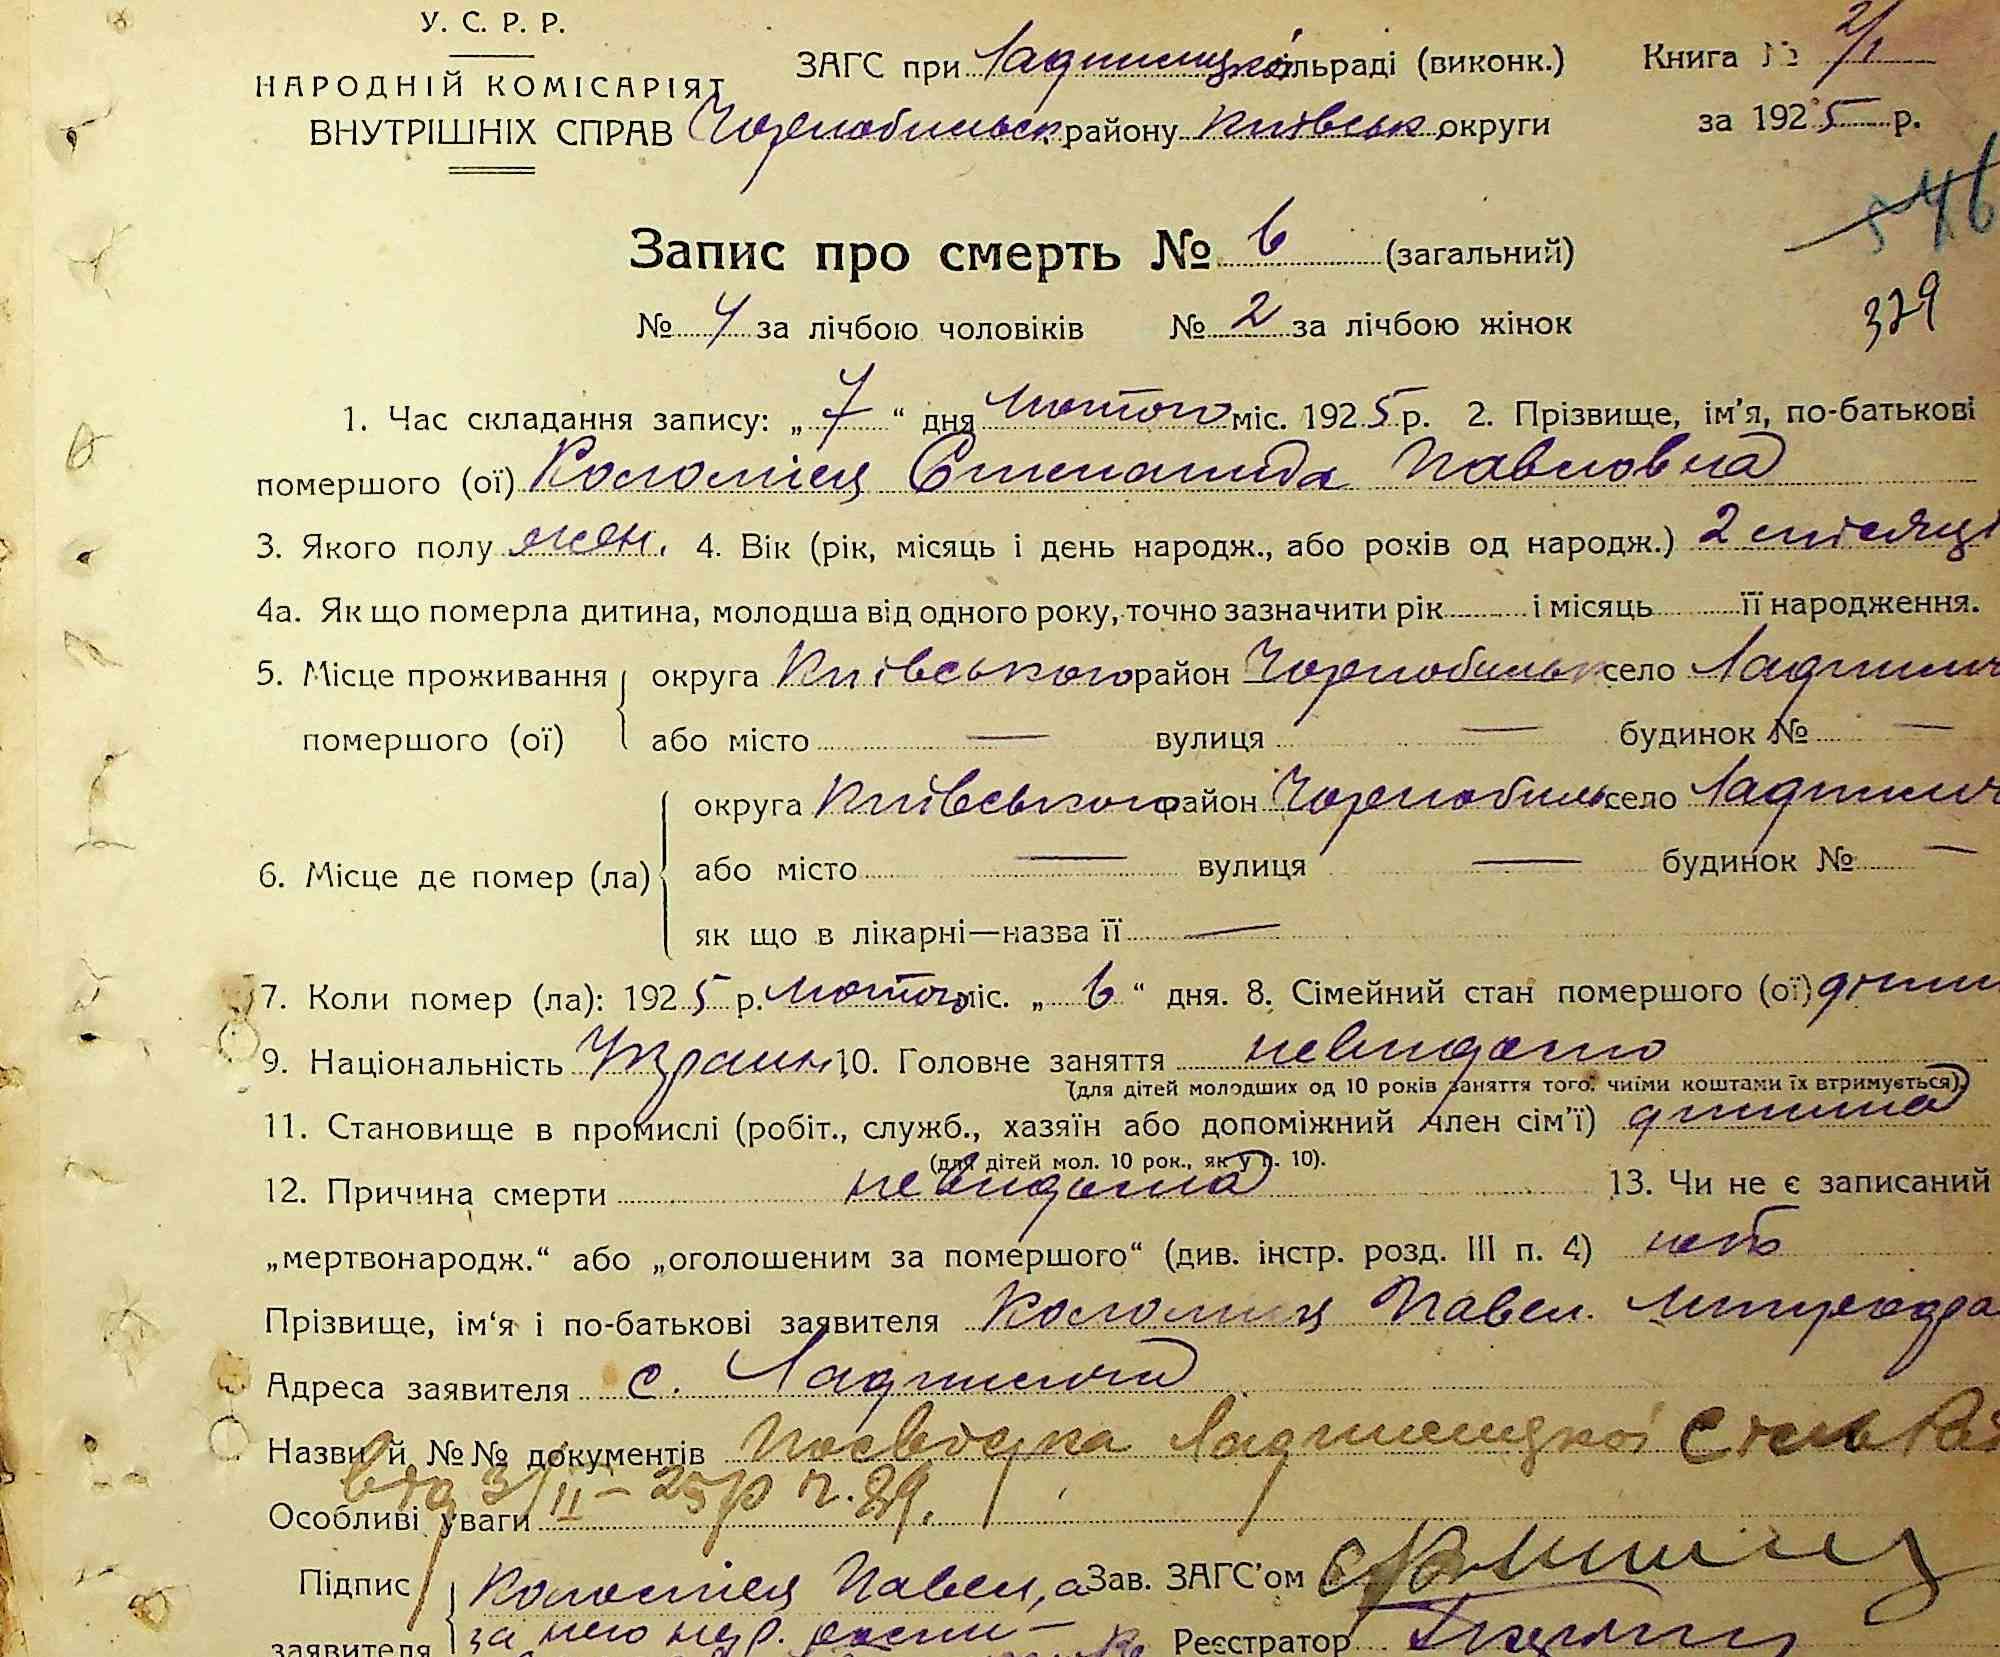 У. С. Р. Р.
НАРОДНІЙ КОМІСАРІЯТ
ВНУТРІШНІХ СПРАВ
ЗАГС при Ладижицькій сільраді (виконк.)
Чорнобильск. району Київськ. округи
Книга № 2/1
за 1925 р.
546
329
Запис про смерть № 6 (загальний)
№ 4 за лічбою чоловіків № 2 за лічбою жінок
1. Час складання запису: „7“ дня Лютого міс. 1925 р. 2. Прізвище, ім'я, по-батькові
помершого (ої) Коломієц Степанида Павловна
3. Якого полу жен. 4. Вік (рік, місяць і день народж., або років од народж.) 2 місяці
4а. Як що померла дитина, молодша від одного року, точно зазначити рік і місяць її народження.
5. Місце проживання округа Київського район Чорнобильск село Ладижич
помершого (ої) або місто — вулиця — будинок № —
округа Київського район Чорнобиль село Ладижич
6. Місце де помер (ла) або місто — вулиця — будинок № —
як що в лікарні—назва її —
7. Коли помер (ла): 1925 р. Лютого міс. „6“ дня. 8. Сімейний стан помершого (ої) дити
9. Національність Украин. 10. Головне заняття невидомо
(для дітей молодших од 10 років заняття того, чиїми коштами їх втримується).
11. Становище в промислі (робіт., служб., хазяїн або допоміжний член сім'ї) дитина
(для дітей мол. 10 рок., як у п. 10).
12. Причина смерти невидома 13. Чи не є записаний
„мертвонародж.“ або „оголошеним за помершого“ (див. інстр. розд. III п. 4) нетъ
Прізвище, ім'я і по-батькові заявителя Коломиец Павел.
Адреса заявителя с. Ладижичи
Назви й №№ документів Посвідка Ладижицької Сільра
від 3/II–25р ч. 89.
Особливі уваги
Підпис Коломієц Павел, а Зав. ЗАГС'ом
заявителя за него Реєстратор